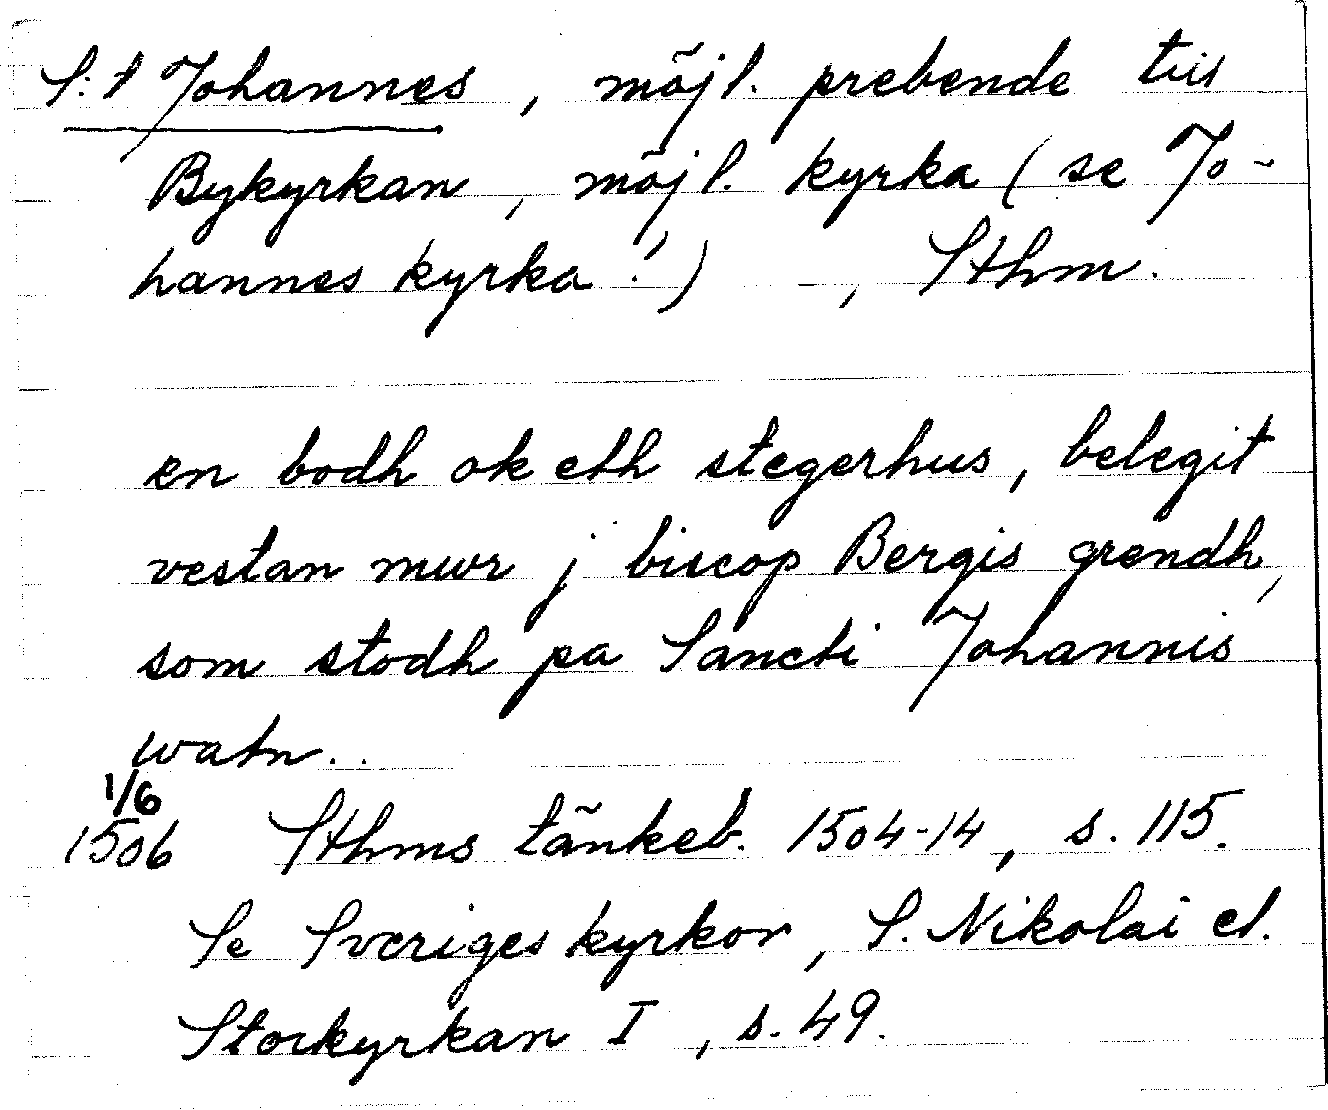 S:t Johannes, möjl. prebende till
Bykyrkan, möjl. kyrka (se Jo-
hannes kyrka!), Sthm.
en bodh ok eth stegerhus, belegit
vestan mwr j biscop Bergis grendh,
som stodh pa Sancti Johannis
watn..
1/6
1506 Sthms tänkeb. 1504-14, s. 115.
Se Sveriges kyrkor, S. Nikolai el.
Storkyrkan I, s. 49.